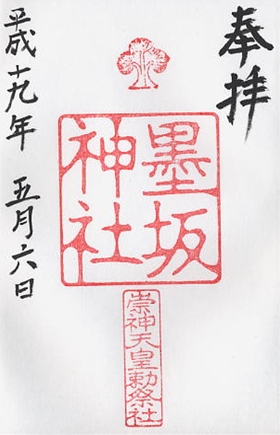 奉拝
墨坂
神社
崇神天皇勅祭社
平成十九年 五月六日